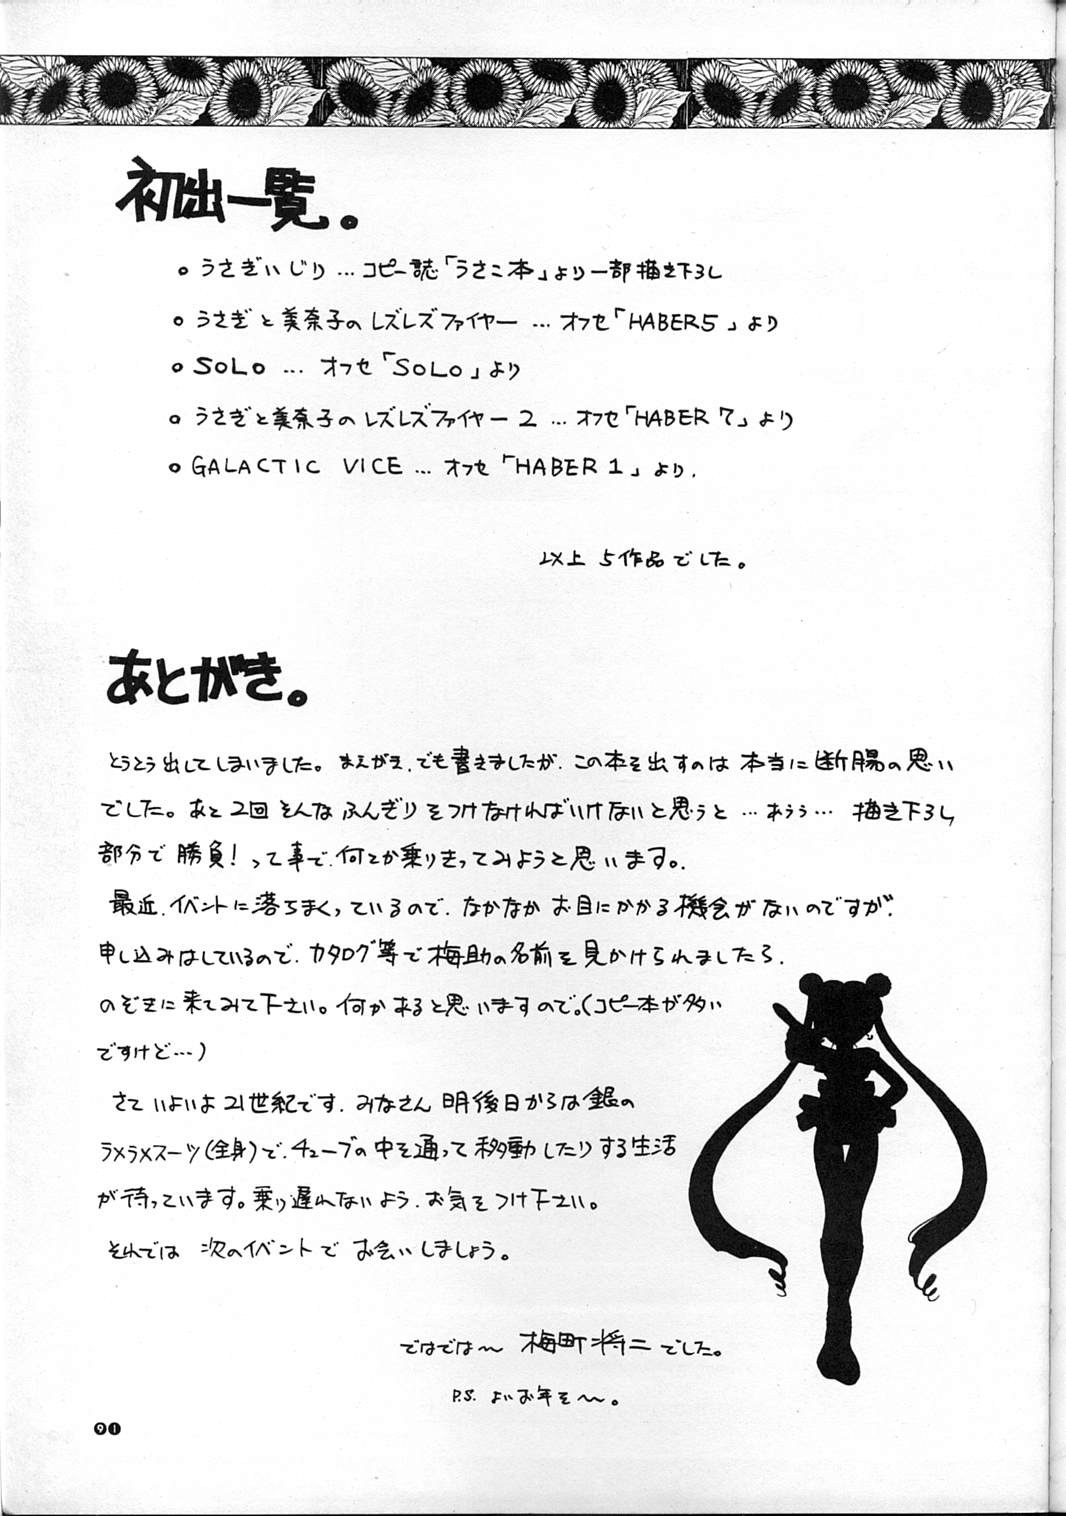 初出一覧。
うさぎいじり…コピー誌「うさこ本」より一部描き下ろし
うさぎと美奈子のレズレズファイヤー…オフセ「HABER5」より
SOLO…オフセ「SOLO」より
うさぎと美奈子のレズレズファイヤー2…オフセ「HABER7」より
GALACTIC VICE…オフセ「HABER1」より.
以上 5作品でした。
あとがき。
とうとう出してしまいました。まえがき.でも書きましたが.この本を出すのは本当に断腸の思い
でした。あと2回そんなふんぎりをつけなければいけないと思うと…あうう…描き下ろし
部分で勝負!って事で.何とか乗りきってみようと思います。
最近.イベントに落ちまくっているので.なかなかお目にかかる機会がないのですが.
申し込みはしているので.カタログ等で梅助の名前を見かけられましたら.
のぞきに来てみて下さい。何かあると思いますので。(コピー本が多い
ですけど…)
さていよいよ21世紀です.みなさん明後日からは銀の
ラメラメスーツ(全身)で.チューブの中を通って移動したりする生活
が待っています。乗り遅れないよう.お気をつけ下さい。
それでは次のイベントでお会いしましょう。
ではでは〜梅町将二でした。
P.S. よいお年を〜。
91